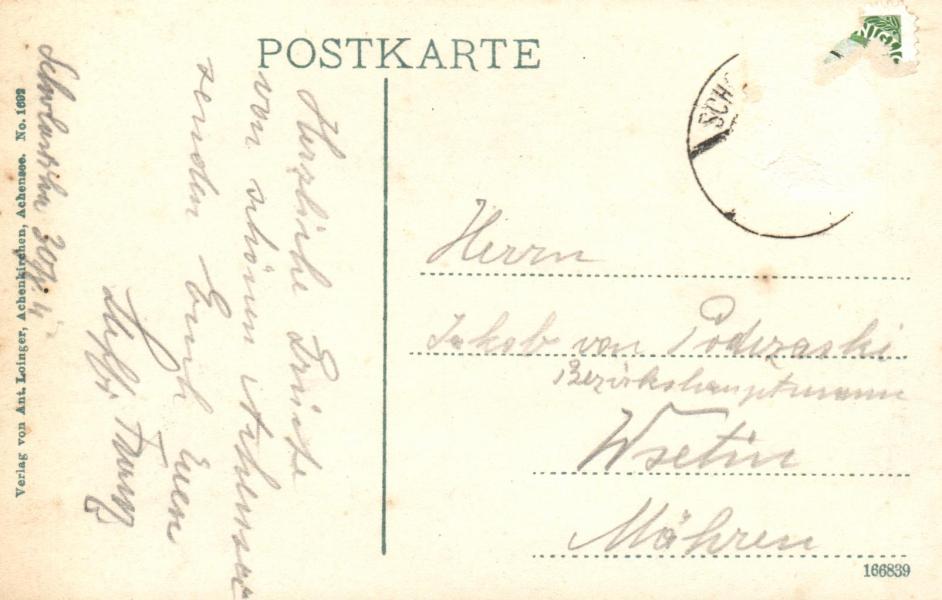 POSTKARTE
NIGLIC
SCH
Herzliche Grüße
von schönen Achensee
senden Euch Euere
Scholastika 30/V. 4
Herrn
Jakob von Podczaski
Bezirkshauptmann
Wsetin
Mähren
166839
Verlag von Ant. Loinger, Achenkirchen, Achensee. No. 1692